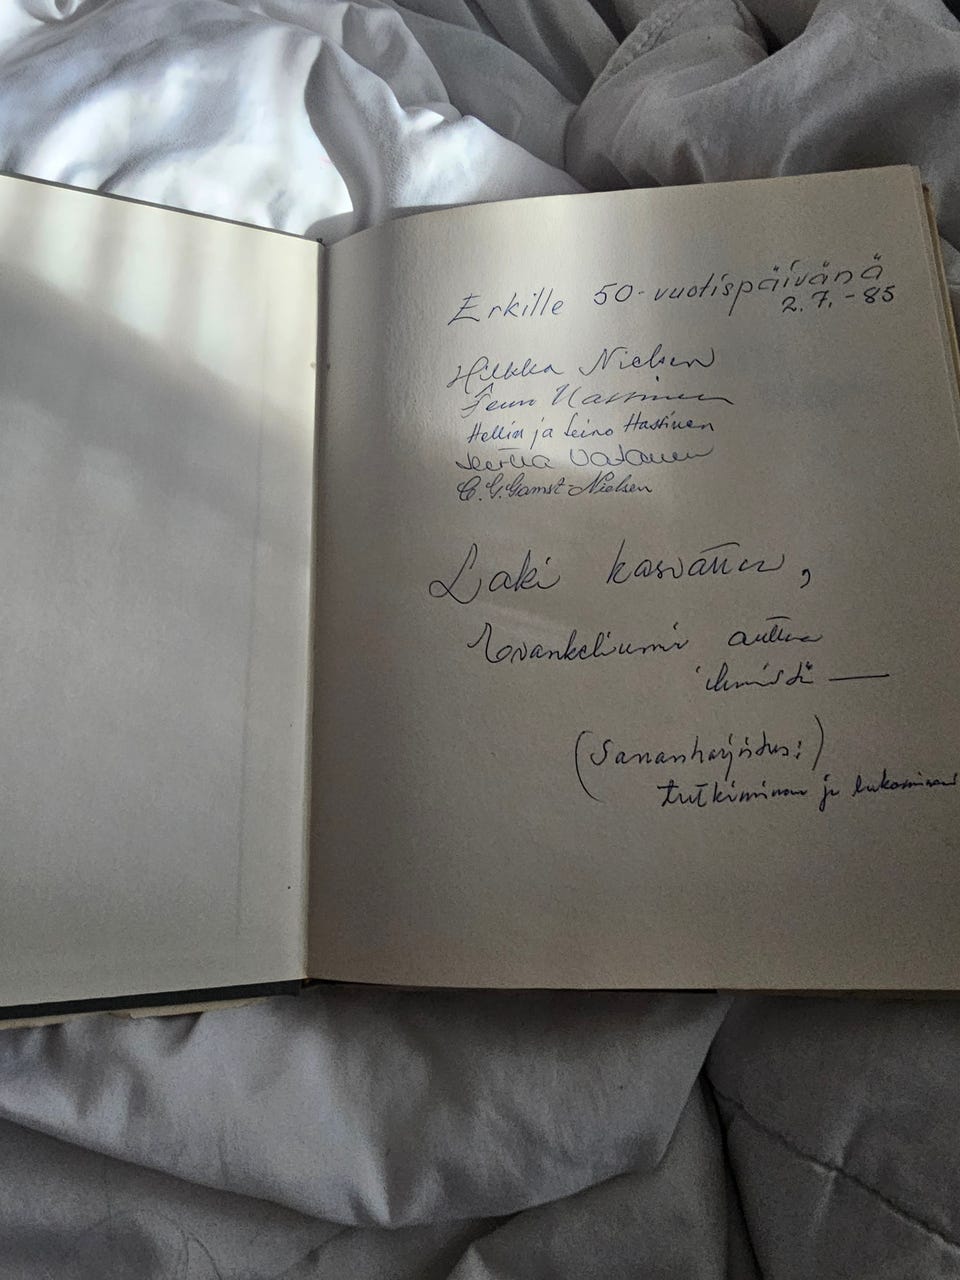 Erkille 50-vuotispäivänä
2.7.-85
Hilkka Nielsen
Hellin ja Seino Hassinen
Vatanen
C. G. Gamst-Nielsen
Laki kasvattaa,
Evankeliumi auttaa
ihmistä —
(Sananharjoitus:)
tutkiminen ja lukeminen